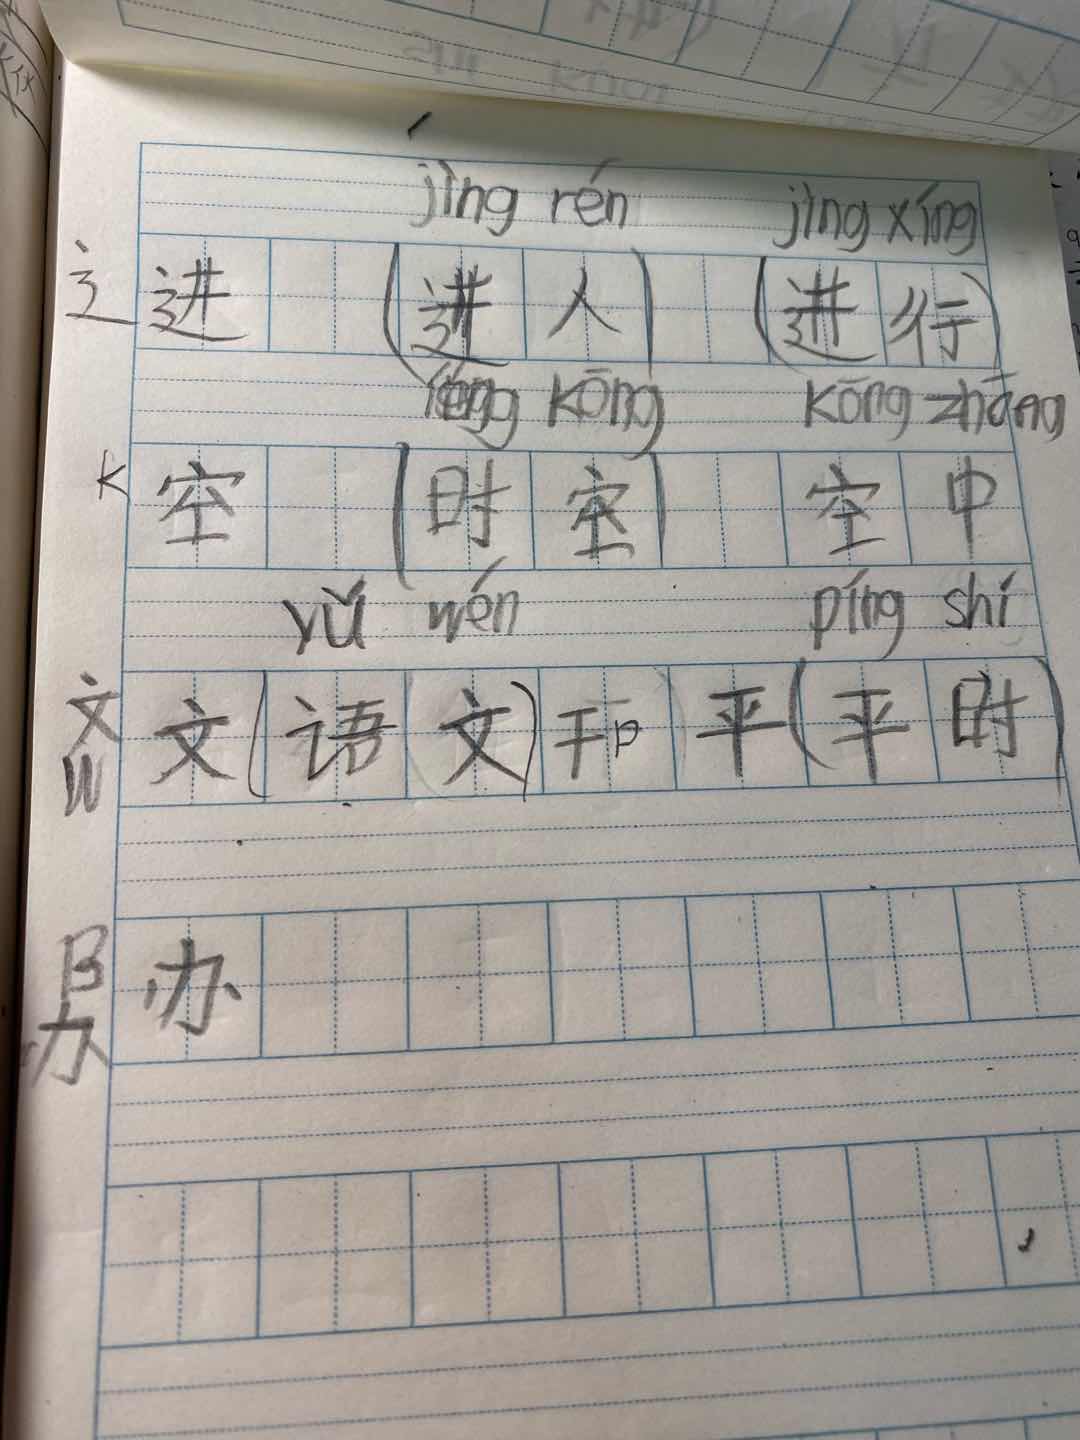 jìng rén jìng xíng
辶 进 (进人) (进行)
kōng kōng zhōng
K 空 (时空) 空中
yǔ wén píng shí
文 W 文(语文) 平(平时)
B 办 办